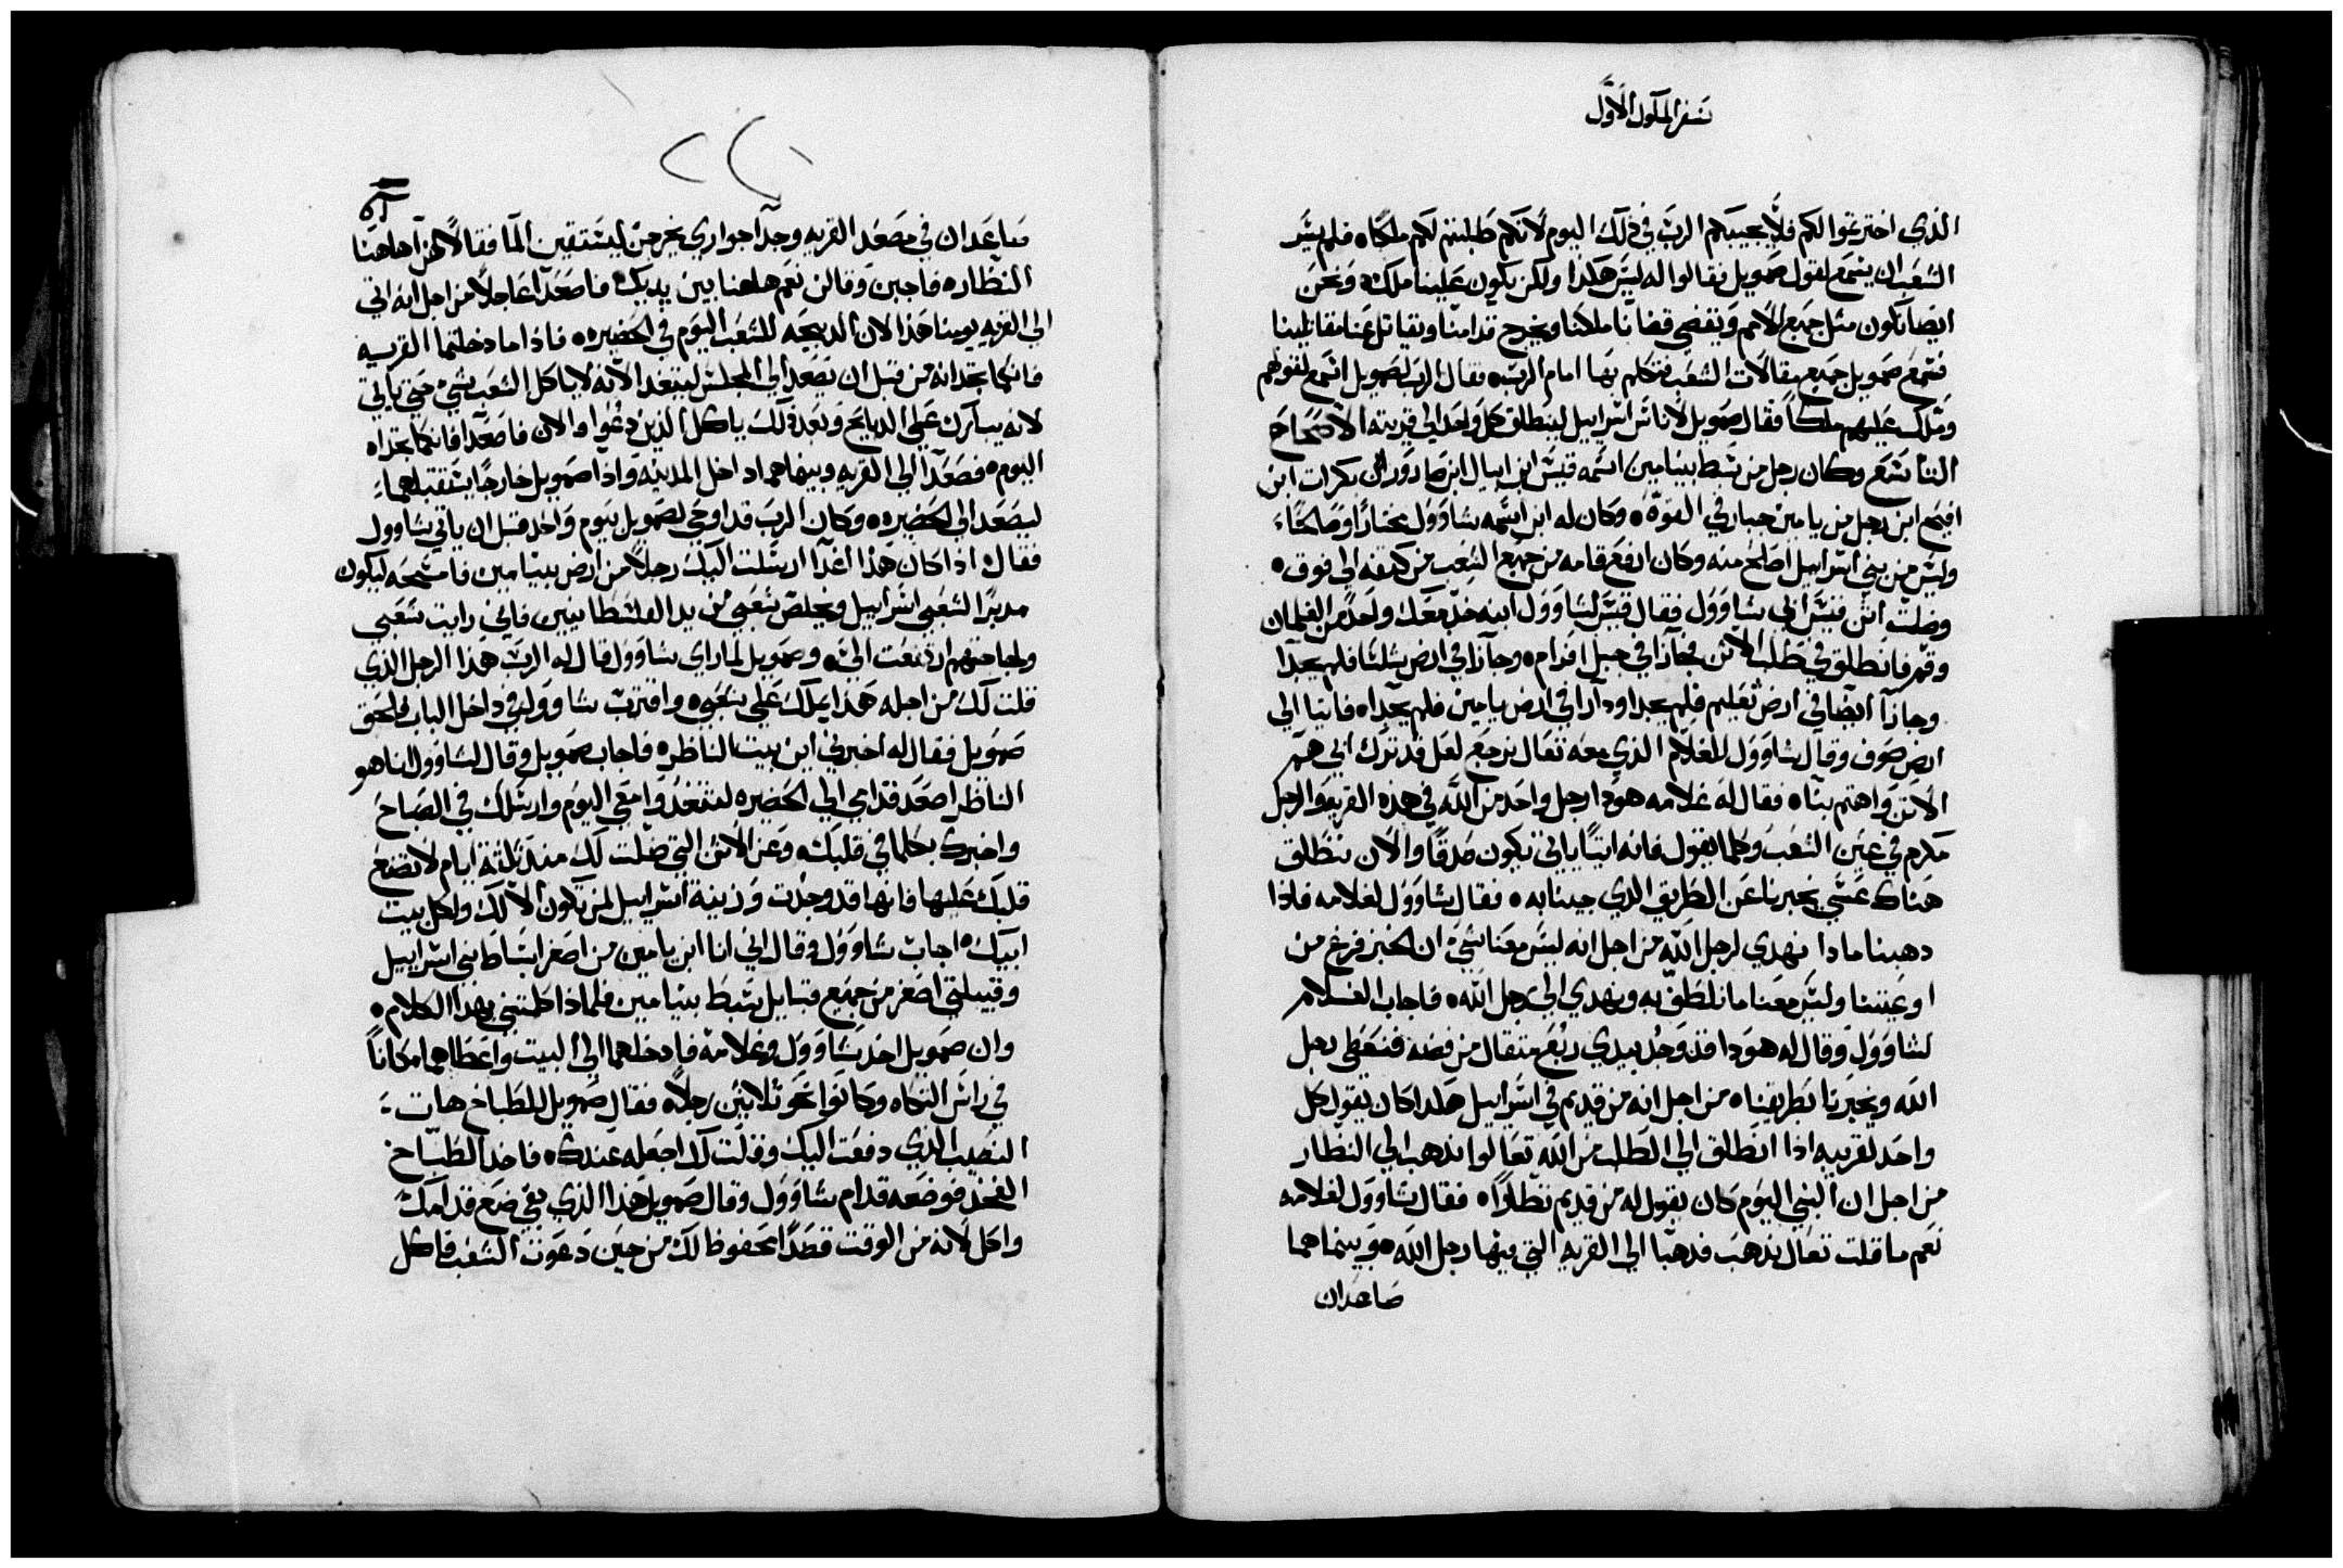 سفر الملوك الاول
الذي اخترتموا لكم فلا يجيبكم الرب في ذلك اليوم لانكم طلبتم لكم ملكا ه فلم يسر
الشعب ان يسمع لقول صمويل فقالوا له ليس هكذا ولكن يكون علينا ملك ونحن
ايضا نكون مثل جميع الامم ويقضي قضانا ملكنا ويخرج قدامنا ويقاتل عنا مقاتلينا
فسمع صمويل جميع مقالات الشعب فتكلم بها امام الرب ه فقال الرب لصمويل اسمع لقولهم
وملك عليهم ملكا فقال صمويل لاناس اسراييل لينطلق كل واحد الي قريته الاصحاح
التاسع وكان رجل من سبط بنيامين اسمه قيس ابن ابيال ابن صادور ابن بكرات ابن
افيح ابن رجل من يامين جبار في القوة ه وكان له ابن اسمه شاوول مختارا وصالحا
وليس من بني اسراييل اصلح منه وكان ارفع قامه من جميع الشعب من كتفه الي فوق ه
وضلت اتن قيس ابي شاوول فقال قيس لشاوول ابنه خذ معك واحد من الغلمان
وقم فانطلق في طلب الاتن فجازا في جبل افرام ه وجازا في ارض شلشا فلم يجدا
وجازا ايضا في ارض ثعليم فلم يجدا ودارا في ارض يامين فلم يجداه فاتيا الي
ارض صوف وقال شاوول للغلام الذي معه تعال نرجع لعل قد ترك ابي هم
الاتن واهتم بنا ه فقال له غلامه هوذا رجل واحد من الله في هذه القريه والرجل
مكرم في عين الشعب وكلما يقول فانه اتيا ياتي يكون صدقا والان ننطلق
هناك عسي يخبرنا عن الطريق الذي جينا به ه فقال شاوول لغلامه فاذا
ذهبنا ماذا نهدي لرجل الله من اجل انه ليس معنا شي ان الخبز فرغ من
اوعيتنا وليس معنا ما نلطف به ونهدي الي رجل الله ه فاجاب الغلام
لشاوول وقال له هوذا قد وجد بيدي ربع مثقال من فضه فنعطي رجل
الله ويخبرنا بطريقنا ه من اجل انه من قديم في اسراييل هكذا كان يقول كل
واحد لقريبه اذا انطلق الي الطلب من الله تعالوا نذهب الي النظار
من اجل ان النبي اليوم كان يقول له من قديم نظارا ه فقال شاوول لغلامه
نعم ما قلت تعال نذهب فذهبا الي القريه التي فيها رجل الله ه وبينما هما
صاعدان
صاعدان في مصعد القريه وجدا جواري يخرجن ليستقين الما فقالا لهن اهاهنا
النظاره فاجبن وقالن نعم هاهنا بين يديك فاصعدا عاجلا من اجل انه اتي
الي القريه يومنا هذا لان الذبيحه للشعب اليوم في الحضيره ه فاذا ما دخلتما القريه
فانكما تجدانه من قبل ان يصعد الي المجلس ليتغدا لانه لا ياكل الشعب شي حتي ياتي
لانه يبارك علي الذبايح وبعد ذلك ياكل الذين دعوا ه والان فاصعدا فانكما تجداه
اليوم ه فصعدا الي القريه وبينما هما داخل المدينه واذا صمويل خارجا يستقبلهما
ليصعد الي الحضيره ه وكان الرب قد اوحي لصمويل بيوم واحد قبل ان ياتي شاوول
فقال اذا كان هذا غدا ارسلت اليك رجلا من ارض بنيامين فامسحه ليكون
مدبرا لشعبي اسراييل ويخلص شعبي من يد الفلسطانيين فاني رايت شعبي
ولجاجتهم ارتفعت الي ه وصمويل لما راي شاوول قال له الرب هذا الرجل الذي
قلت لك من اجله هذا يملك علي شعبي ه واقترب شاوول في داخل الباب فلحق
صمويل فقال له اخبرني اين بيت الناظر ه فاجاب صمويل وقال لشاوول انا هو
الناظر اصعد قدامي الي الحضيره لتتغدوا معي اليوم وارسلك في الصباح
واخبرك بكلما في قلبك ه وعن الاتن التي ضلت لك منذ ثلثة ايام لا تضع
قلبك عليها فانها قد وجدت وزينة اسراييل لمن تكون الا لك ولكل بيت
ابيك ه اجاب شاوول وقال اني انا ابن يامين من اصغر اسباط بني اسراييل
وقبيلتي اصغر من جميع قبايل سبط بنيامين فلماذا كلمتني بهذا الكلام ه
وان صمويل اخذ شاوول وغلامه فادخلهما الي البيت واعطاهما مكانا
في راس التكاه وكانوا نحو ثلاثين رجلا ه فقال صمويل للطباخ هات
النصيب الذي دفعت اليك وقلت لك اجعله عندك ه فاخذ الطباخ
الفخذ فوضعه قدام شاوول وقال صمويل هذا الذي بقي ضع قدامك
واكل لانه من الوقت قصدا محفوظ لك من حين دعوت الشعب فاكل